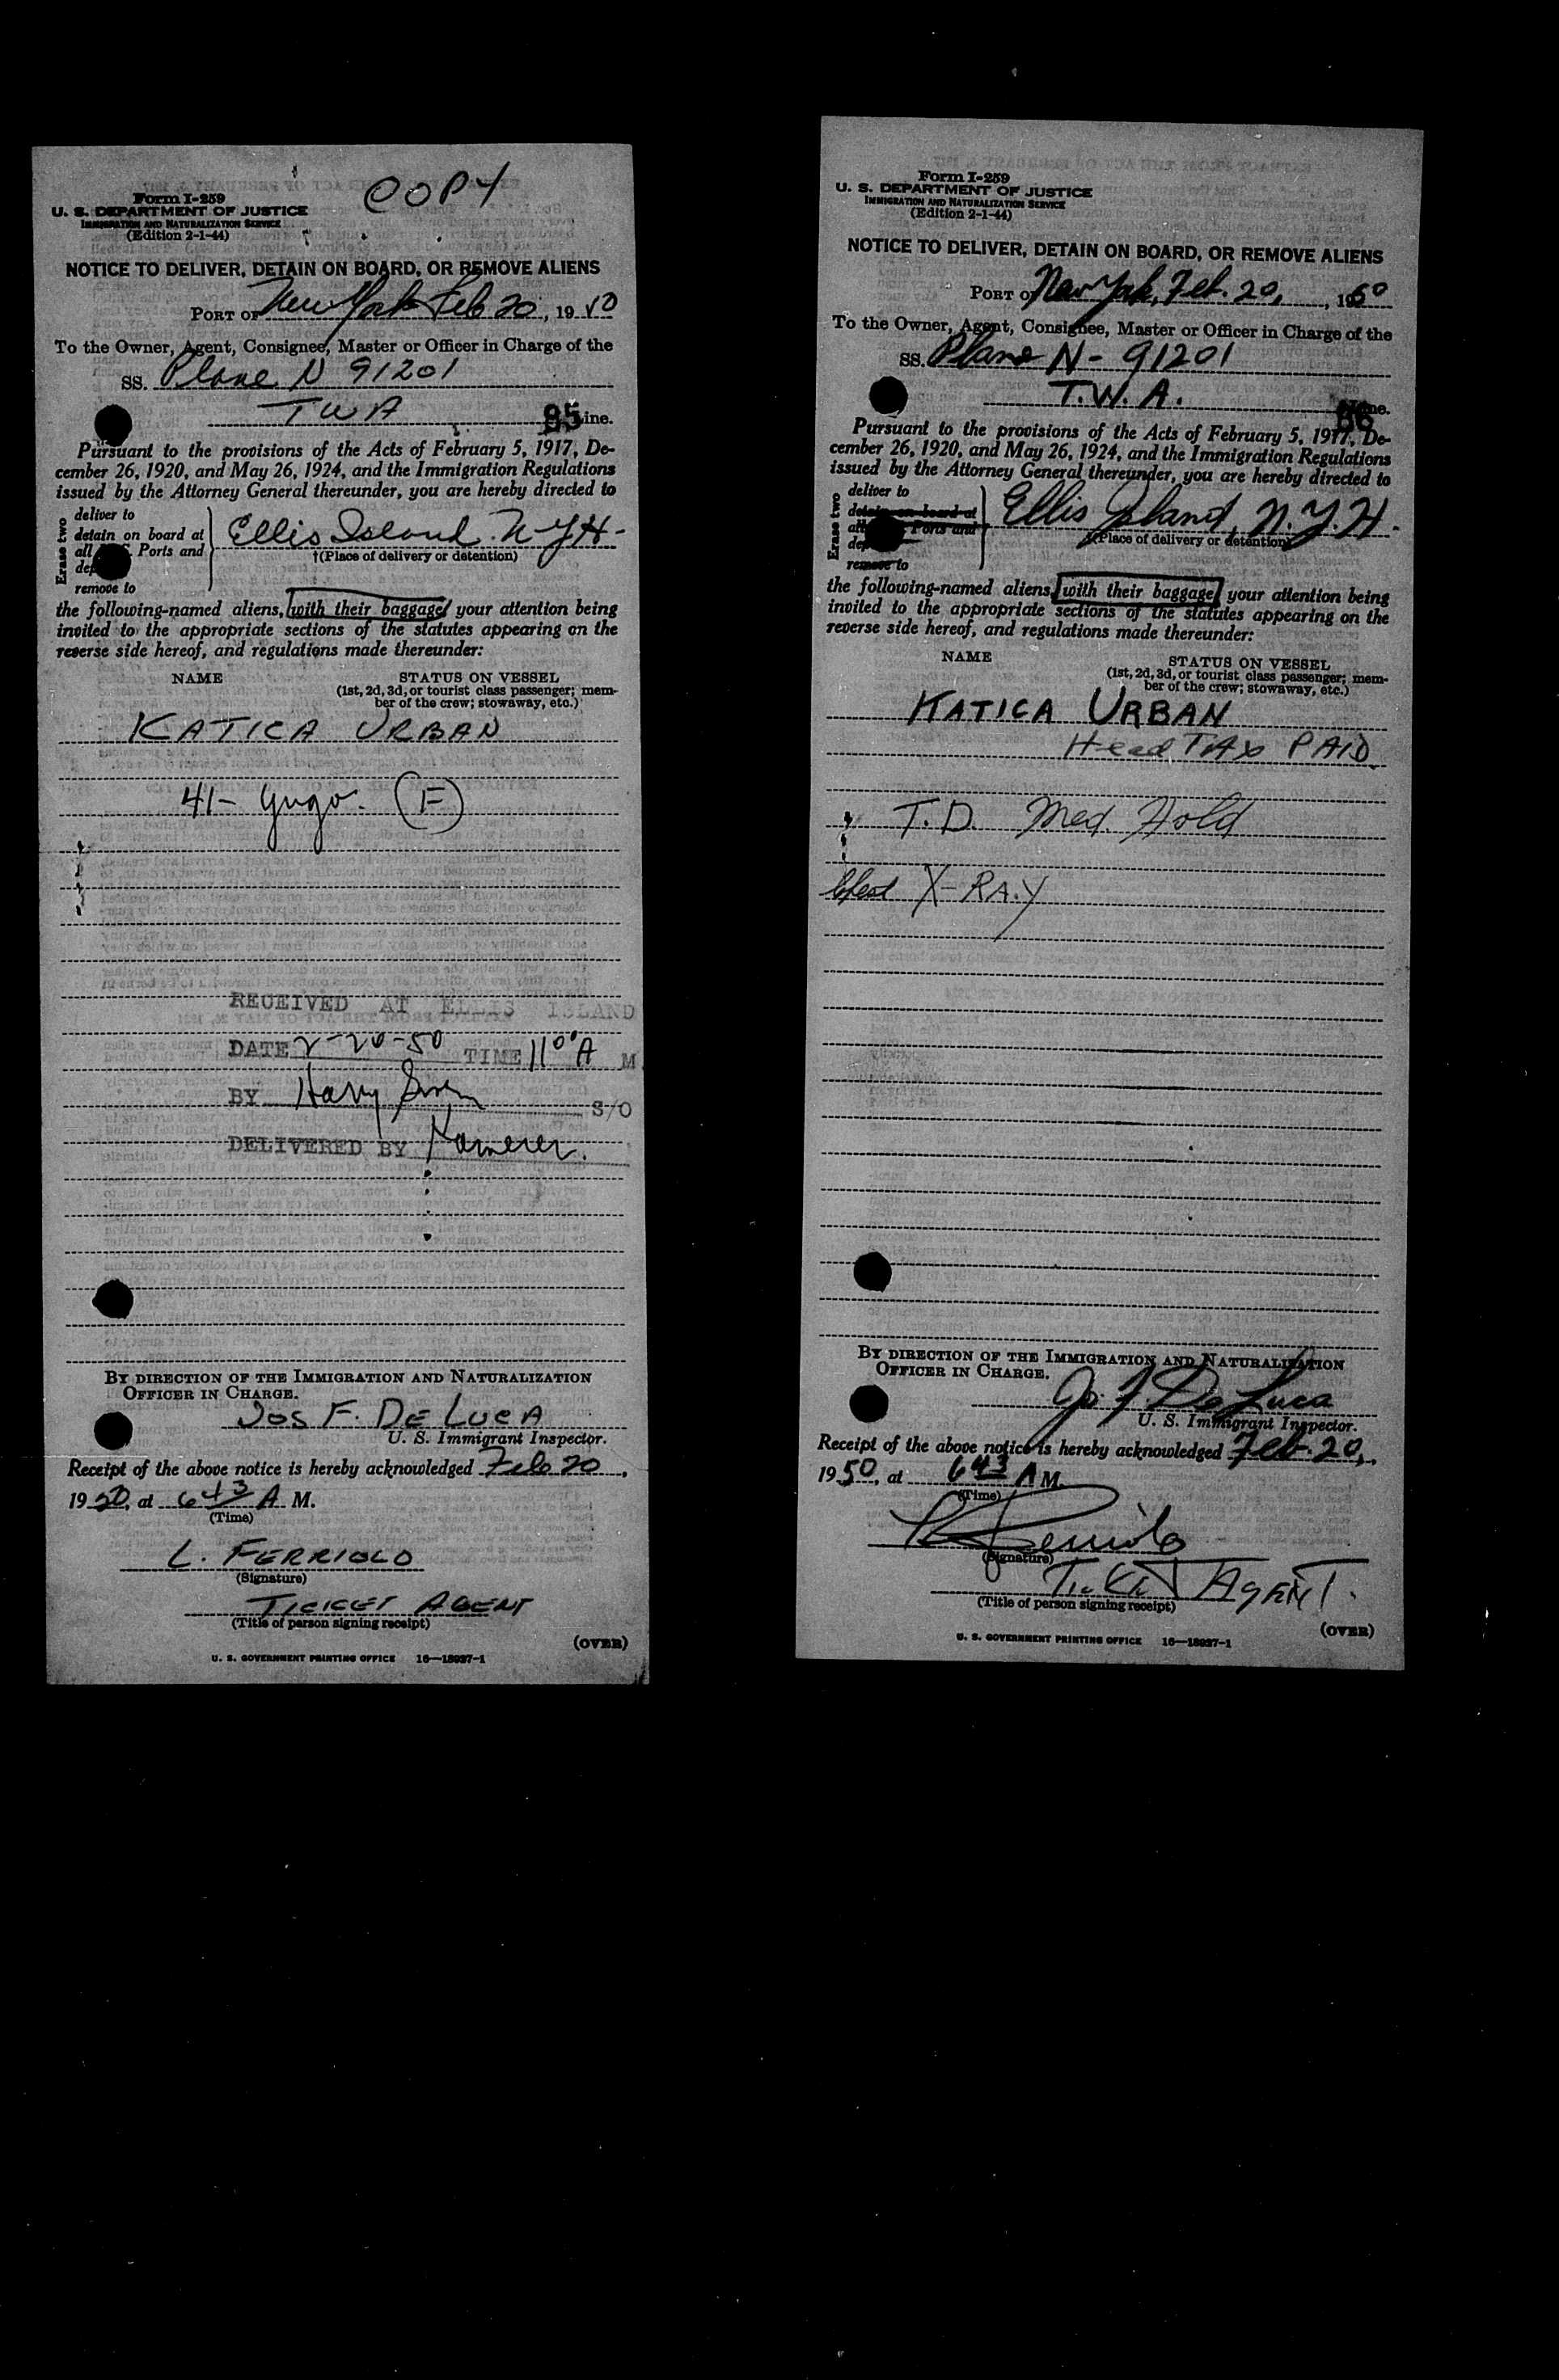 COPY
Form I-259
U. S. DEPARTMENT OF JUSTICE
IMMIGRATION AND NATURALIZATION SERVICE
(Edition 2-1-44)
NOTICE TO DELIVER, DETAIN ON BOARD, OR REMOVE ALIENS
PORT OF New York Feb 20, 1950
To the Owner, Agent, Consignee, Master or Officer in Charge of the
SS. Plane N 91201
TWA 85 ine.
Pursuant to the provisions of the Acts of February 5, 1917, De-
cember 26, 1920, and May 26, 1924, and the Immigration Regulations
issued by the Attorney General thereunder, you are hereby directed to
Erase two
deliver to
detain on board at
all Ports and
dep
remove to
Ellis Island. N Y H-
†(Place of delivery or detention)
the following-named aliens, with their baggage, your attention being
invited to the appropriate sections of the statutes appearing on the
reverse side hereof, and regulations made thereunder:
NAME STATUS ON VESSEL
(1st, 2d, 3d, or tourist class passenger; mem-
ber of the crew; stowaway, etc.)
KATICA URBAN
41- Yugo. (F)
RECEIVED AT ELLIS ISLAND
DATE 2-20-50 TIME 11 00 A M
BY Harry S/O
DELIVERED BY
BY DIRECTION OF THE IMMIGRATION AND NATURALIZATION
OFFICER IN CHARGE.
JOS F. DE LUCA
U. S. Immigrant Inspector.
Receipt of the above notice is hereby acknowledged Feb 20,
1950, at 6 43 A M.
(Time)
L. FERRIOLO
(Signature)
TICKET AGENT
(Title of person signing receipt)
(OVER)
U. S. GOVERNMENT PRINTING OFFICE 16—18987-1
Form I-259
U. S. DEPARTMENT OF JUSTICE
IMMIGRATION AND NATURALIZATION SERVICE
(Edition 2-1-44)
NOTICE TO DELIVER, DETAIN ON BOARD, OR REMOVE ALIENS
PORT OF New York, Feb. 20, , 1950
To the Owner, Agent, Consignee, Master or Officer in Charge of the
SS. Plane N- 91201
T.W.A. 86 ine.
Pursuant to the provisions of the Acts of February 5, 1917, De-
cember 26, 1920, and May 26, 1924, and the Immigration Regulations
issued by the Attorney General thereunder, you are hereby directed to
Erase two
deliver to
detain on board at
all Ports and
dep
remove to
Ellis Island, N.Y.H.
†(Place of delivery or detention)
the following-named aliens, with their baggage, your attention being
invited to the appropriate sections of the statutes appearing on the
reverse side hereof, and regulations made thereunder:
NAME STATUS ON VESSEL
(1st, 2d, 3d, or tourist class passenger; mem-
ber of the crew; stowaway, etc.)
KATICA URBAN
Head TAX PAID
T.D. Med. Hold
Chest X-RAY
BY DIRECTION OF THE IMMIGRATION AND NATURALIZATION
OFFICER IN CHARGE.
Jos F De Luca
U. S. Immigrant Inspector.
Receipt of the above notice is hereby acknowledged Feb. 20,
1950, at 6 43 A M.
(Time)
(Signature)
Ticket AGENT.
(Title of person signing receipt)
(OVER)
U. S. GOVERNMENT PRINTING OFFICE 16—18987-1